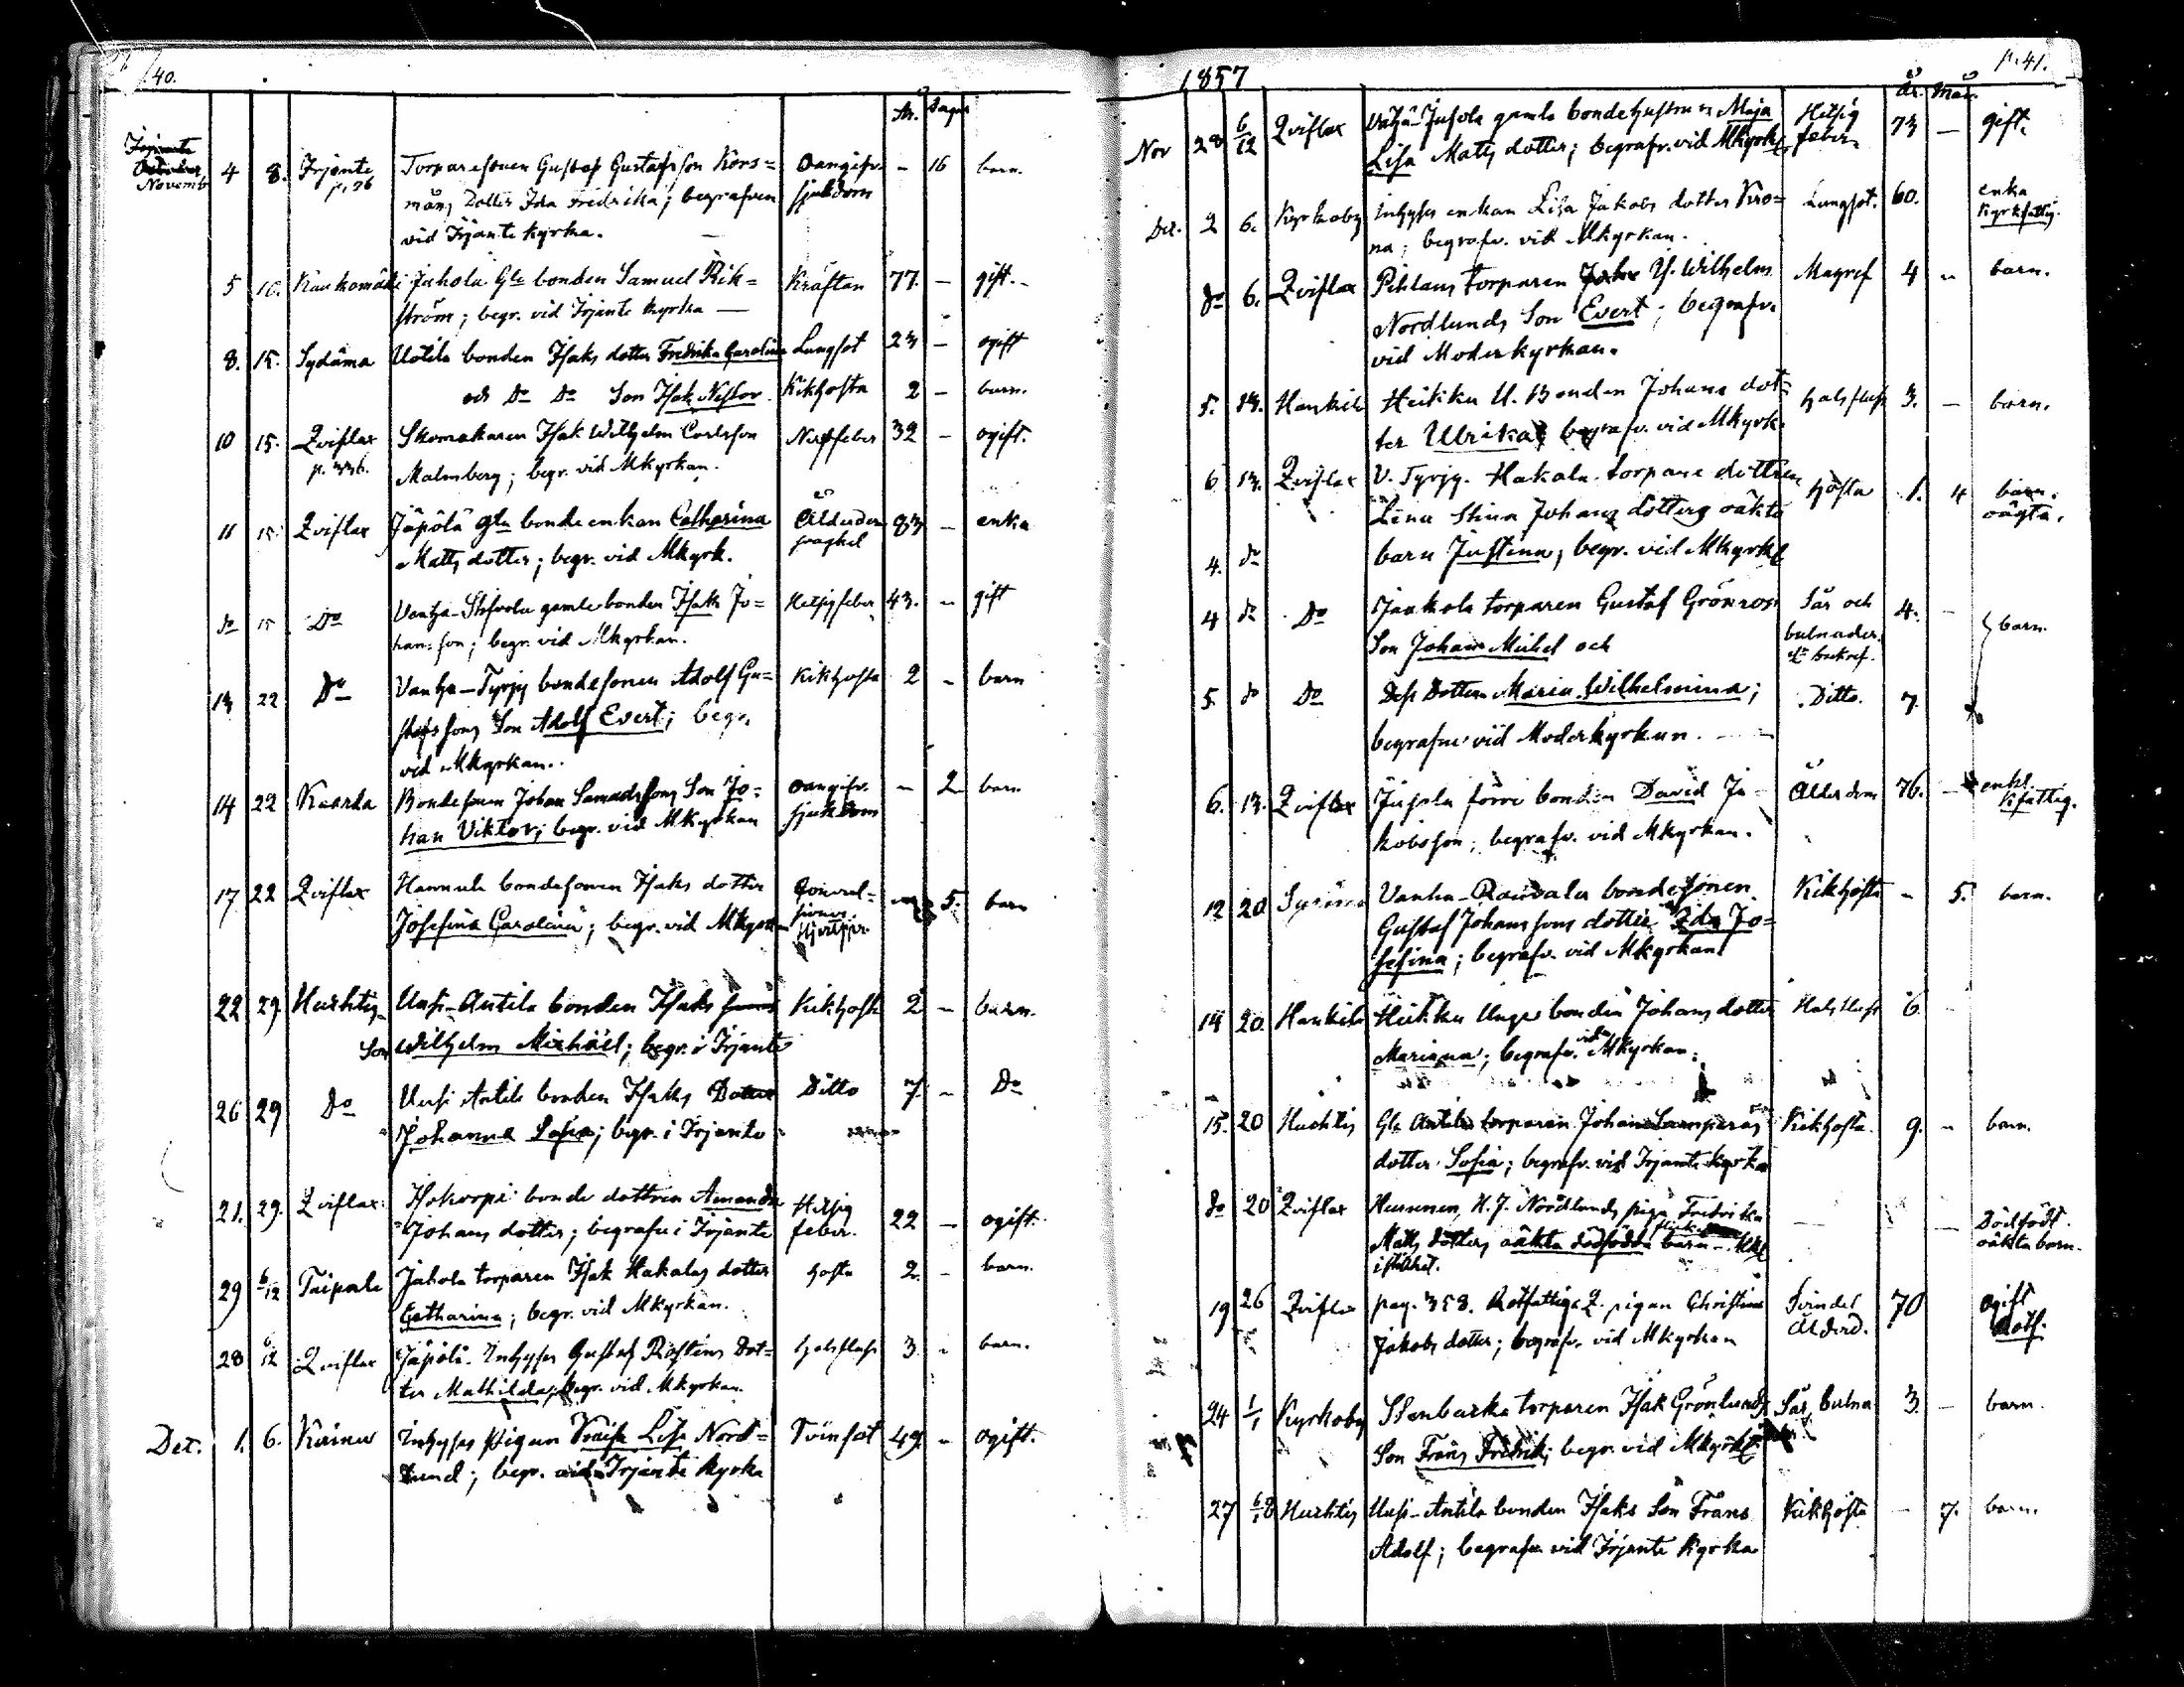 40.
År. Dagar
Novemb 4 8. Irjante Torparesonen Gustaf Gustafsson Kors= Oangifv. - 16 barn.
p. 76 mans Dotter Ida Fredrika; begrafven sjukdom
vid Irjante kyrka.
5 10. Kaukomäki Juhola Gla bonden Samuel Rik= Kräftan 77. - gift.
ström; begr. vid Irjante kyrka
8. 15. Sydäma Uotila bonden Isaks dotter Fredrika Carolina Lungsot 23 - ogift
och Do Do Son Isak Nestor Kikhosta 2 - barn.
10 15. Qviflax Skomakaren Isak Wilhelm Carlsson Nerffeber 32 - ogift.
p. 336. Malmberg; begr. vid Mkyrkan.
11 15. Qviflax Jäpölä gla bondeenkan Catharina Ålderdoms 83 - enka
Matts dotter; begr. vid Mkyrk.
do 15 Do gamle bonden Isak Jo= Hetsigfeber 43. - gift
hansson; begr. vid Mkyrkan.
13 22 Do Vanha-Tyrjy bondesonen Adolf Gu= Kikhosta 2 - barn
stafssons Son Adolf Evert; begr.
vid Mkyrkan.
14 22 Kaarla Bondesonen Johan Samuelssons Son Jo= Oangifv. - 2 barn
han Viktor; begr. vid Mkyrkan sjukdom
17 22 Qviflax Hannula bondesonen Isaks dotter Convul= 5. barn
Josefina Carolina; begr. vid Mkyrkan sioner
22 29. Huhtis Uusi-Antila bonden Isaks Kikhosta 2 - barn.
Son Wilhelm Michaël; begr. i Irjante
26 29 Do Uusi Antila bonden Isaks Dotter Ditto 7. - Do
Johanna Sofia; begr. i Irjante
21. 29. Qviflax Isokorpi bonde dottren Amanda Hetsig 22 - ogift.
Johans dotter; begrafv i Irjante feber.
29 6/12 Taipale Juhola torparen Isak Hakalas dotter hosta 2. - barn.
Catharina; begr. vid Mkyrkan.
28 6/12 Qviflax Jäpölä Inhyses Gustaf Rostens Dot= halsfluss 3 - barn.
ter Mathilda; begr. vid Mkyrkan.
Dec. 1. 6. Kainu Inhyses pigan Lisa Nord= Tvinsot 49. - ogift.
lund; begr. vid Irjante kyrka
1857 p. 41.
år. mån.
Nov 28 6/12 Qviflax Jusola gamla bondehustrun Maja Hetsig 73 - gift.
Lisa Matts dotter; begrafv. vid Mkyrk feber
Dec. 2 6. Kyrkoby Inhyses enkan Lisa Jakobs dotter Kro= Lungsot. 60. enka
na; begrafv. vid Mkyrkan. Kyrkfattig.
do 6. Qviflax Pihlaus torparen Wilhelm Magref 4 - barn.
Nordlunds Son Evert; begrafv.
vid Moderkyrkan.
5. 13. Hankila Heikku U. Bonden Johans dot= halsfluss 3. - barn.
ter Ulrika; begrafv. vid Mkyrk.
6 13. Qviflax V. Tyrjy Hakala torpare dottren hosta 1. 4 barn.
Lena Stina Johans dotters oäkta oägta.
4. do barn Justina; begr. vid Mkyrk
4 do Do Jaakola torparen Gustaf Grönroos Sår och 4. - barn.
Son Johan Mickel och bulnader
5. do Do Dess Dotter Maria Wilhelmina; Ditto. 7.
begrafne vid Moderkyrkan.
6. 13. Qviflax Jusola förre bonden David Ja= Ålderdom 76. - enkl.
kobsson; begrafv. vid Mkyrkan. Kfattig.
12 20 Vanha-Raudala bondesonen Kikhosta - 5. barn.
Gustaf Johanssons dotter Ida Jo=
sefina; begrafv. vid Mkyrkan
14 20 Hankila Heikku Unge bonden Johans dotter Halsfluss 6.
Mariana; begrafv. vid Mkyrkan.
15. 20 Huhtis Gla Antila torparen Johan dotter Kikhosta. 9. - barn.
dotter Sofia; begrafv. vid Irjante kyrka
do 20 Qviflax H. J. Nordlunds piga Fredrika - - Dödfödt
Matts dotters oäkta dödfödda barn oäkta barn.
19 26 Qviflax pag. 358. Rotfattige Q. pigan Christina 70 Ogift
Jakobs dotter; begrafv. vid Mkyrkan Ålderd. Rotf.
24 1/1 Kyrkoby Stenbacka torparen Isak Grönlunds Sår, bulna 3. - barn.
Son Frans Fredrik; begr. vid Mkyrk
27 Huhtis Uusi-Antila bonden Isaks Son Frans Kikhosta - 7. barn.
Adolf; begrafv. vid Irjante Kyrka